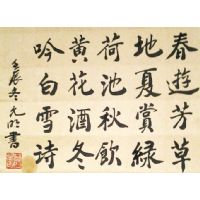 春遊芳草
地夏賞緑
荷池秋飲
黄花酒冬
吟白雪詩
壬辰冬元明書